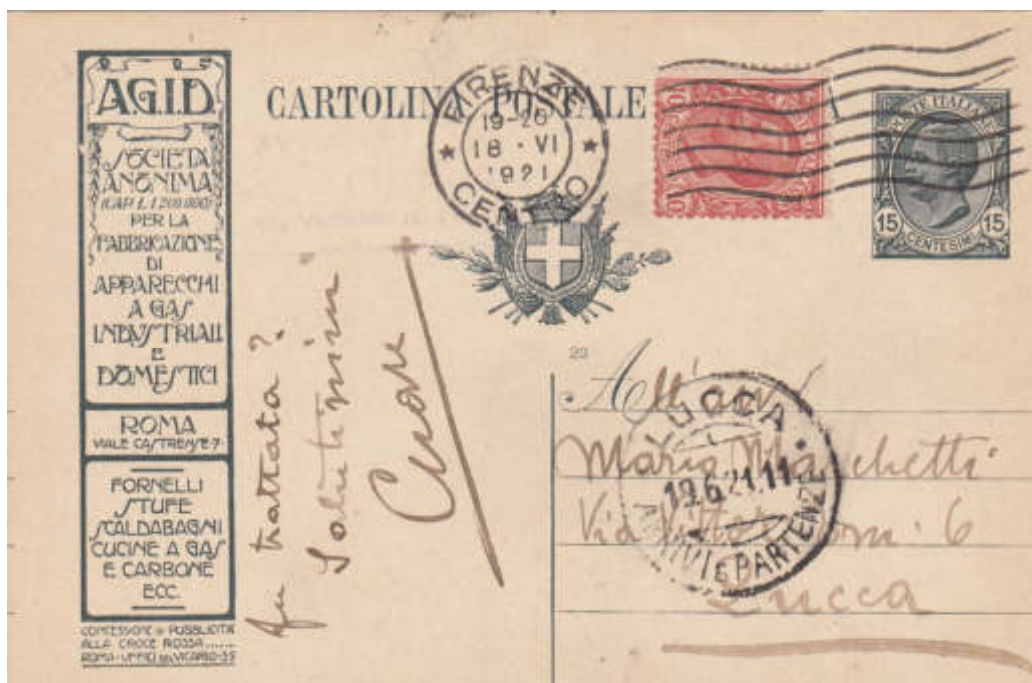 A.G.I.D.
SOCIETÀ
ANONIMA
(CAP. L. 1.200.000)
PER LA
FABBRICAZIONE
DI
APPARECCHI
A GAS
INDVSTRIALI
E
DOMESTICI
ROMA
VIALE CASTRENSE-7-
FORNELLI
STUFE
SCALDABAGNI
CUCINE A GAS
E CARBONE
ECC.
CONCESSIONE DI PUBBLICITÀ
ALLA CROCE ROSSA......
ROMA-UFFICI DEL VICARIO-35
CARTOLINA POSTALE
FIRENZE
19-20
18 · VI
1921
CENTRO
POSTE ITALIANE
15 15
CENTESIMI
23
fu trattata?
Salutissimi
All'avv.
Mario Marchetti
Via 6
Lucca
LUCCA
19.6.21.11
ARRIVI E PARTENZE